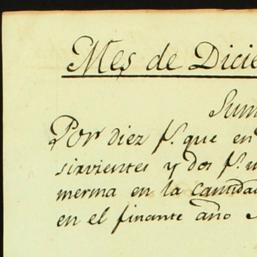 Mes de Dicie
Sum
Por diez p.s que en
sirvientes y dos p.s u
merma en la Cantidad
en el finante año